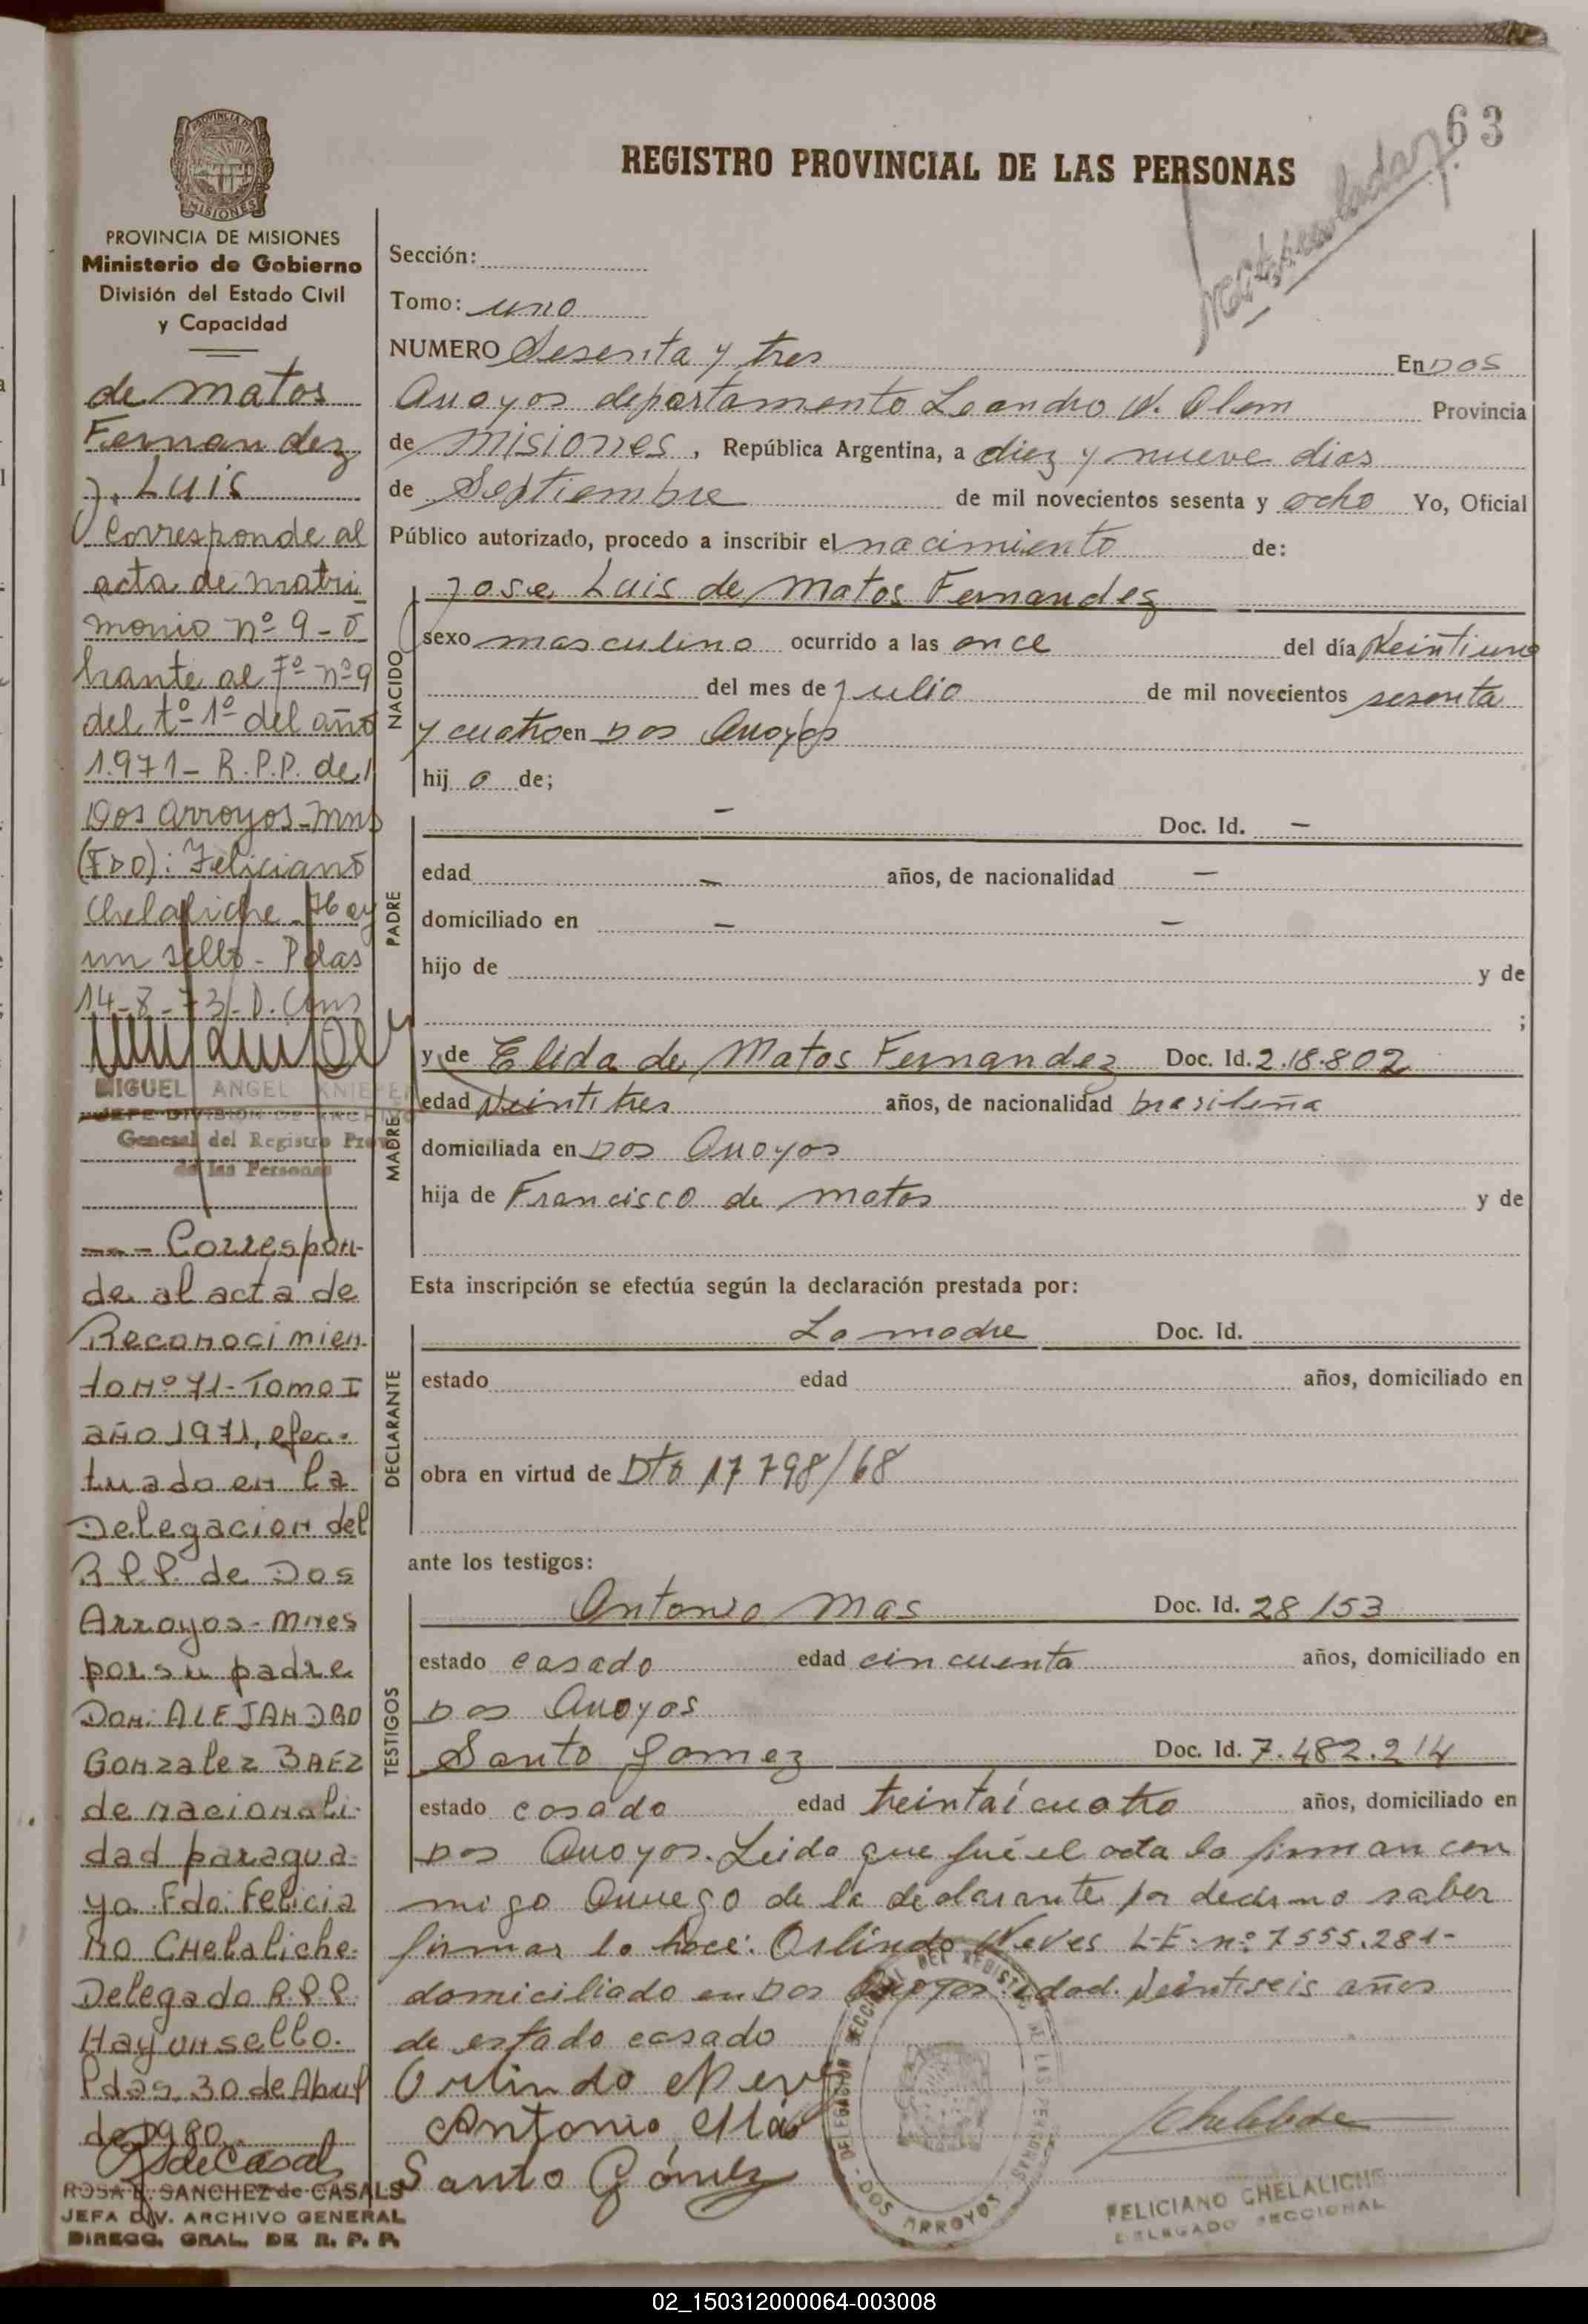 63
Matriculado
REGISTRO PROVINCIAL DE LAS PERSONAS
PROVINCIA DE
MISIONES
PROVINCIA DE MISIONES
Ministerio de Gobierno
División del Estado Civil
y Capacidad
de Matos
Fernandez
J. Luis
Corresponde al
acta de matri
monio nº 9 - o
brante al Fº nº 9
del tº 1º del año
1.971 - R.P.P. de
Dos Arroyos - Mns
(FDO): Feliciano
Chelaliche - Hay
un sello - Pdas
14-8-73
MIGUEL ANGEL KNIE
JEFE DIVISION DE ARCHIVO
General del Registro Prov
de las Personas
--- Correspon-
de al acta de
Reconocimien
to Nº 71 - Tomo I
año 1971, efec-
tuado en la
Delegacion del
R.P.P. de Dos
Arroyos - Mnes
por su padre
Don: ALEJANDRO
Gonzalez BAEZ
de nacionali-
dad paragua-
ya. Fdo: Felicia
no Chelaliche.
Delegado R.P.P.
Hay un sello.
Pdas, 30 de Abril
de 1980.
RSdeCasals
ROSA SANCHEZ de CASALS
JEFA DIV. ARCHIVO GENERAL
DIRECC. GRAL. DE R. P. P.
Sección:
Tomo: uno
NUMERO Sesenta y tres En DOS
Arroyos departamento Leandro N. Alem Provincia
de Misiones, República Argentina, a diez y nueve dias
de Septiembre de mil novecientos sesenta y ocho Yo, Oficial
Público autorizado, procedo a inscribir el nacimiento de:
NACIDO
Jose Luis de Matos Fernandez
sexo masculino ocurrido a las once del día Veintiuno
del mes de Julio de mil novecientos sesenta
y cuatro en Dos Arroyos
hij o de;
PADRE
- Doc. Id. -
edad - años, de nacionalidad -
domiciliado en - -
hijo de y de
;
MADRE
y de Elida de Matos Fernandez Doc. Id. 2.18.802
edad Veintitres años, de nacionalidad brasileña
domiciliada en Dos Arroyos
hija de Francisco de Matos y de
Esta inscripción se efectúa según la declaración prestada por:
DECLARANTE
La madre Doc. Id.
estado edad años, domiciliado en
obra en virtud de Dto 17 798/68
ante los testigos:
TESTIGOS
Antonio Mas Doc. Id. 28153
estado casado edad cincuenta años, domiciliado en
Dos Arroyos
Santo Gomez Doc. Id. 7.482.214
estado casado edad treintaícuatro años, domiciliado en
Dos Arroyos. Leida que fué el acta la firman con
migo Arruego de la declarante por decir no saber
firmar lo hace: Orlindo Neves L-E-nº 7555.281-
domiciliado en Dos Arroyos edad. Veintiseis años
de estado casado
Orlindo Neves
Antonio Más
Santo Gómez
DELEGACION SECCIONAL DEL REGISTRO DE LAS PERSONAS - DOS ARROYOS
Chelaliche
FELICIANO CHELALICHE
DELEGADO SECCIONAL
02_150312000064-003008